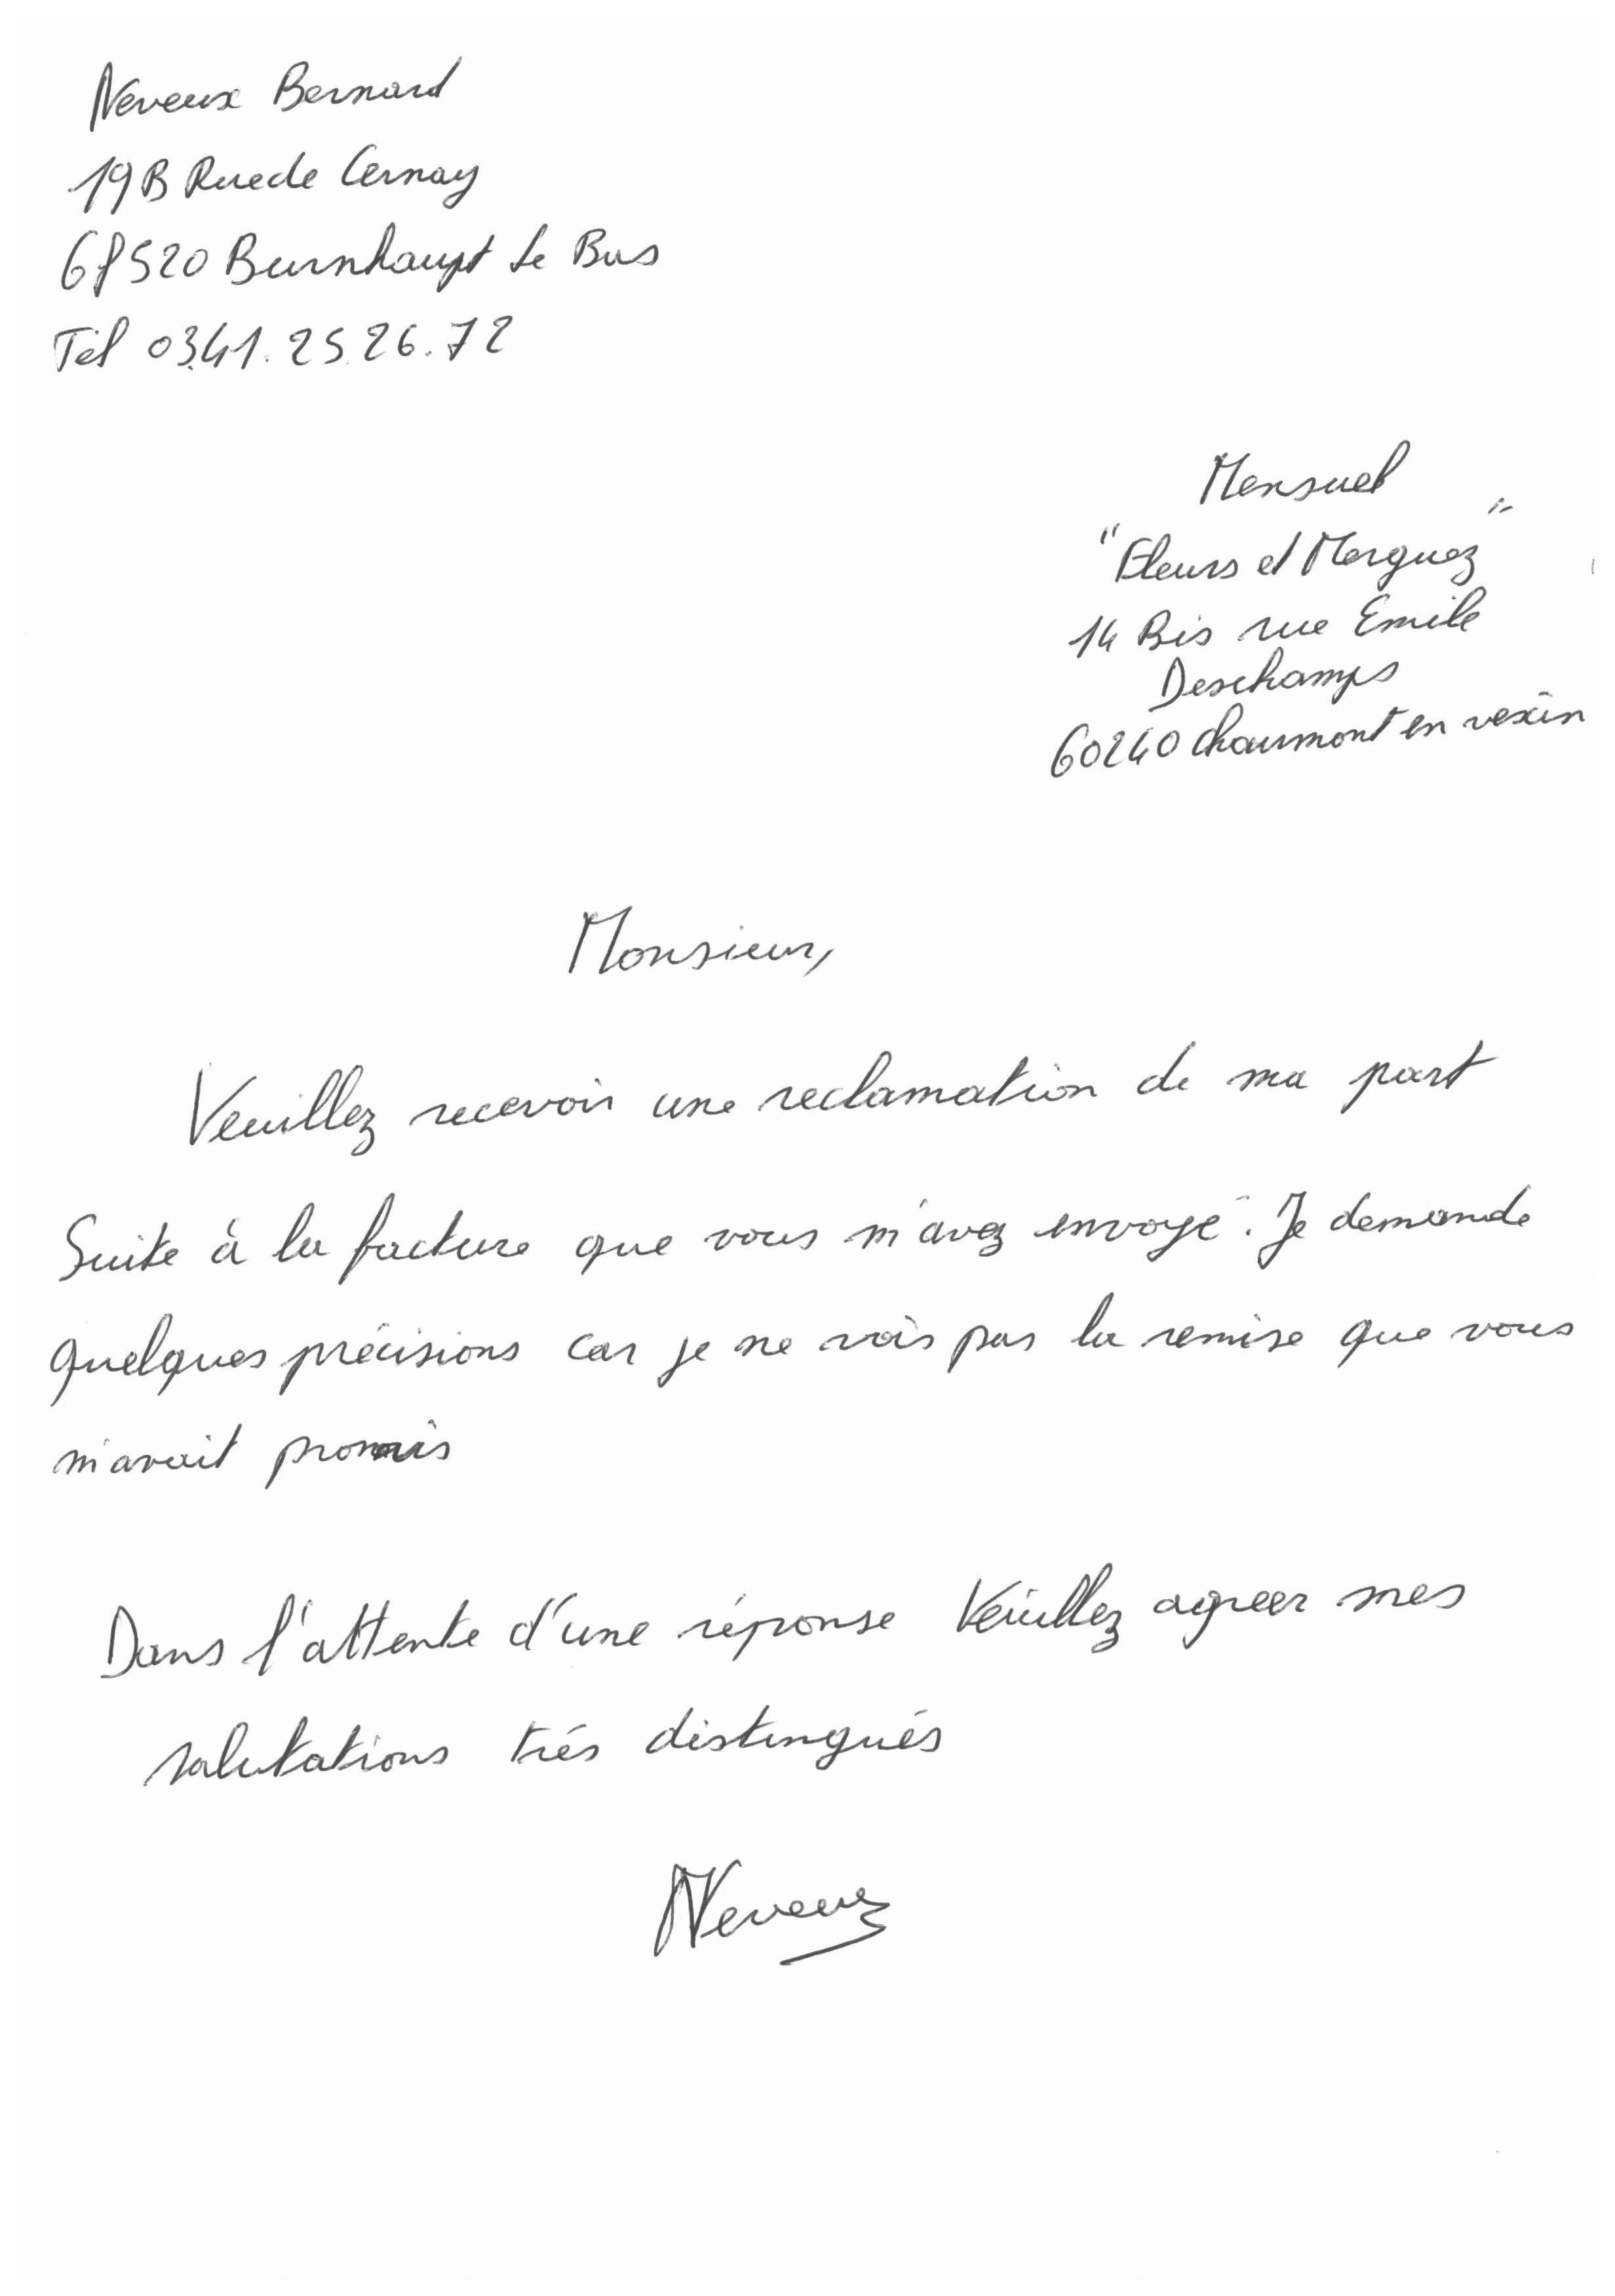 Neveux Bernard
19B Rue de Cernay
68520 Burnhaupt Le Bas
Tél 03.41.25.26.72
Mensuel
"Fleurs et Merguez"
14 Bis rue Emile
Deschamps
60240 Chaumont en vexin
Monsieur,
Veuillez recevoir une reclamation de ma part
Suite à la facture que vous m'avez envoyé. Je demande
quelques précisions car je ne vois pas la remise que vous
m'avait promis
Dans l'attente d'une réponse Veuillez agreer mes
salutations trés distingués
Neveux